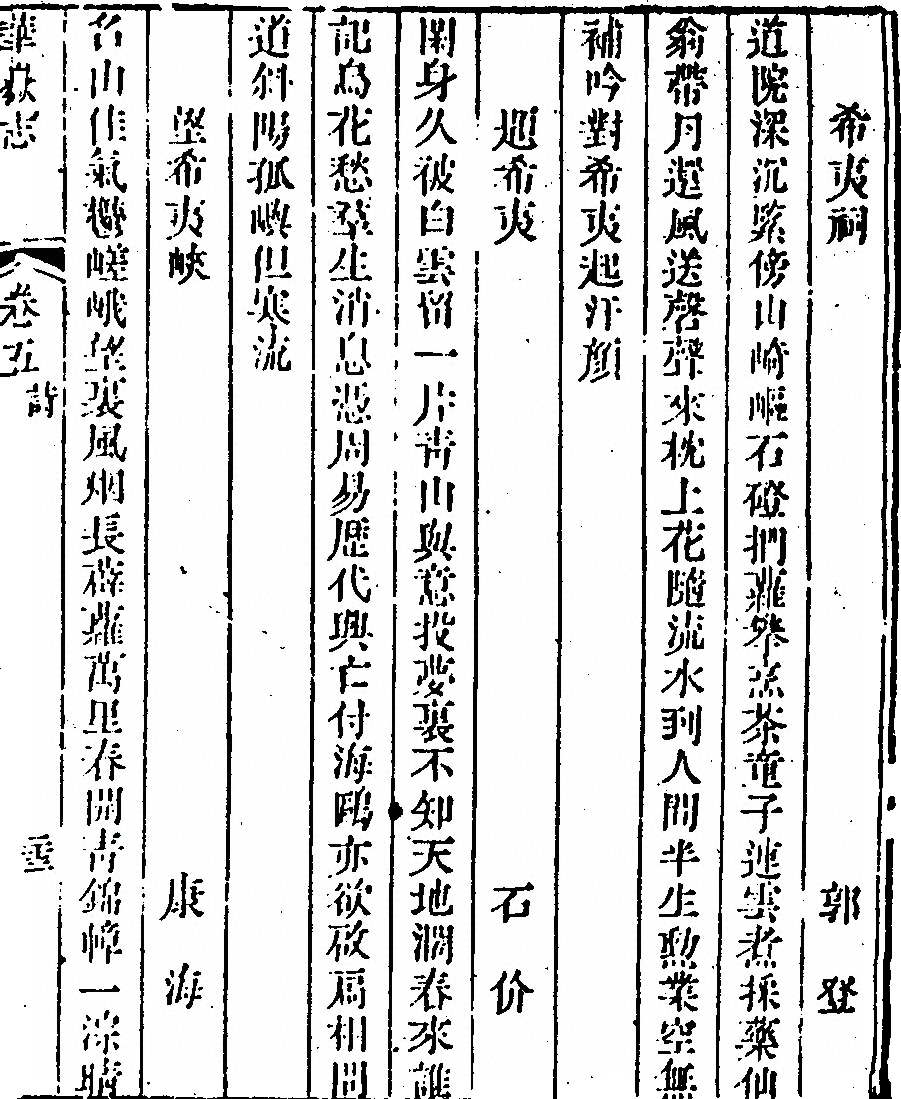 希夷祠 郭登
道院深沉緊傍山崎嶇石磴捫蘿攀烹茶童子連雲煮採藥仙
翁帶月還風送磬聲來枕上花隨流水到人間半生勲業空無
補吟對希夷起汗顔
題希夷 石价
閑身久被白雲留一片青山與意投夢裏不知天地濶春來誰
記鳥花愁羣生消息憑周易歷代興亡付海鷗亦欲敲扃相問
道斜陽孤嶼但寒流
望希夷峽 康海
名山佳氣鬱嵯峨望裏風烟長薜蘿萬里春開青錦幛一淙晴
華嶽志 卷五 詩